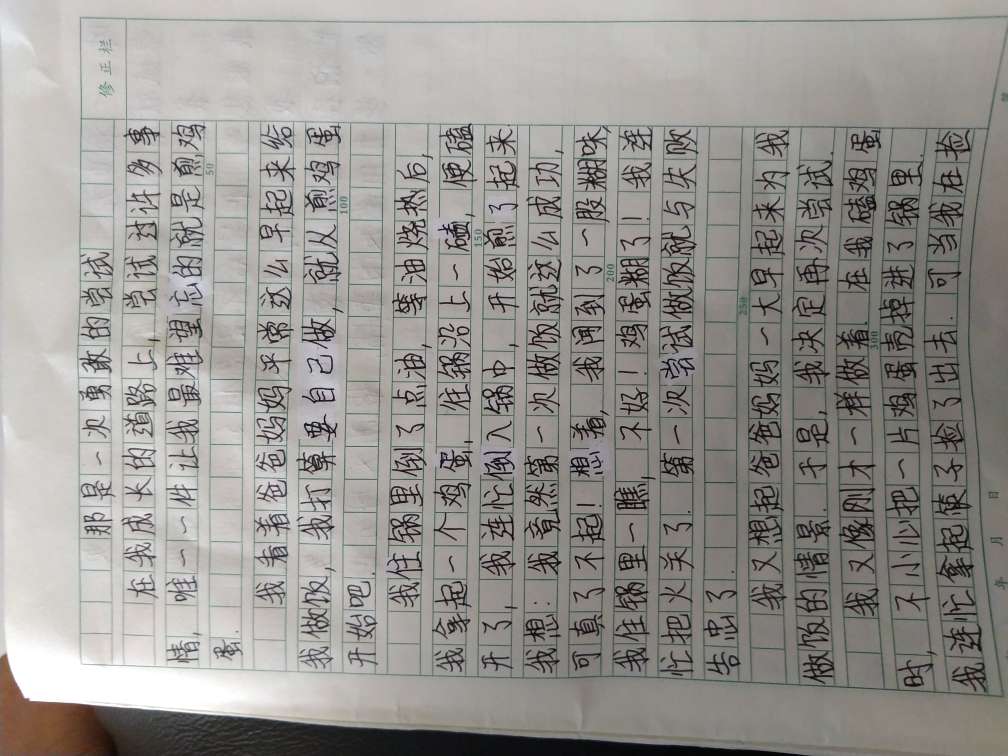 修正栏
那是一次勇敢的尝试
在我成长的道路上，尝试过许多事
情，唯一一件让我最难望忘的就是煎鸡
50
蛋.
我看着爸爸妈妈平常这么早起来给
我做饭，我打算要自己做，就从煎鸡蛋
100
开始吧.
我往锅里倒了点油，等油烧热后，
我拿起一个鸡蛋，往锅沿上一磕，便磕
150
开了，我连忙倒入锅中，开始煎了起来.
我想：我竟然第一次做饭就这么成功，
可真了不起！想着，我闻到了一股糊味，
200
我往锅里一瞧，不好！鸡蛋糊了！我连
忙把火关了.第一次尝试做饭就与失败
告忠了.
250
我又想起爸爸妈妈一大早起来为我
做饭的情景.于是，我决定再次尝试.
我又像刚才一样做着.在我磕鸡蛋
300
时，不小心把一片鸡蛋壳掉进了锅里.
我连忙拿起筷子捡了出去.可当我在捡
年 月 日